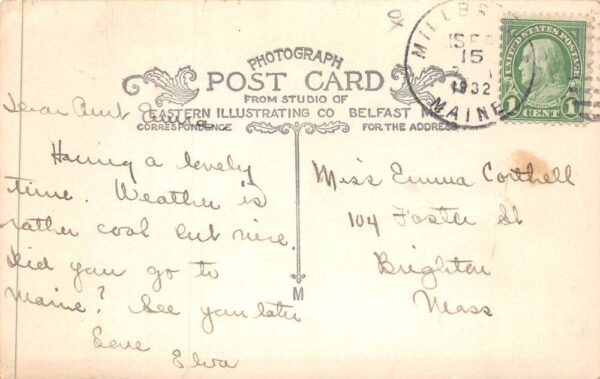 PHOTOGRAPH
POST CARD
FROM STUDIO OF
EASTERN ILLUSTRATING CO BELFAST ME
CORRESPONDENCE
FOR THE ADDRESS
Dear Aunt Emma
Having a lovely
time. Weather is
rather cool but nice.
Did you go to
Maine? See you later
Love
Elva
M
MILLBR
SEP
15
1932
MAINE
UNITED STATES POSTAGE
1 CENT 1
Miss Emma Cotthell
104 Foster St
Brighton
Mass